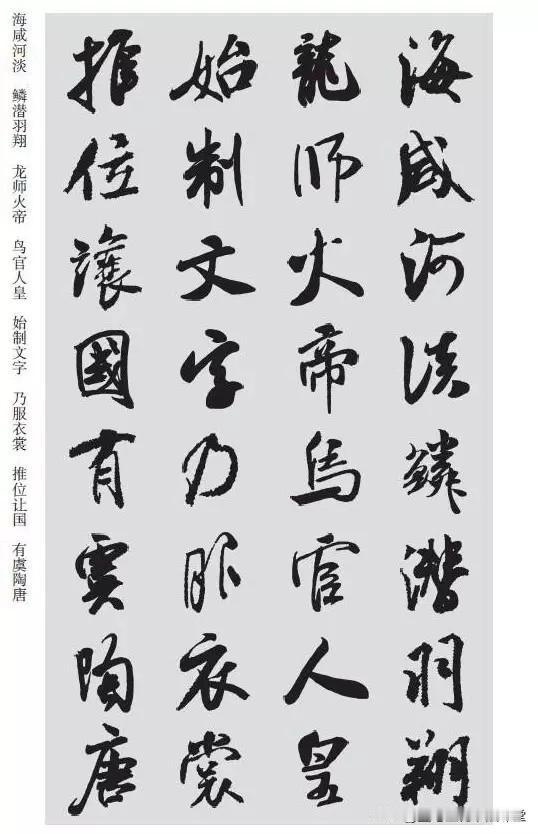 海咸河淡 鳞潜羽翔 龙师火帝 鸟官人皇 始制文字 乃服衣裳 推位让国 有虞陶唐
海咸河淡鱗潛羽翔
龍師火帝鳥官人皇
始制文字乃服衣裳
推位讓國有虞陶唐